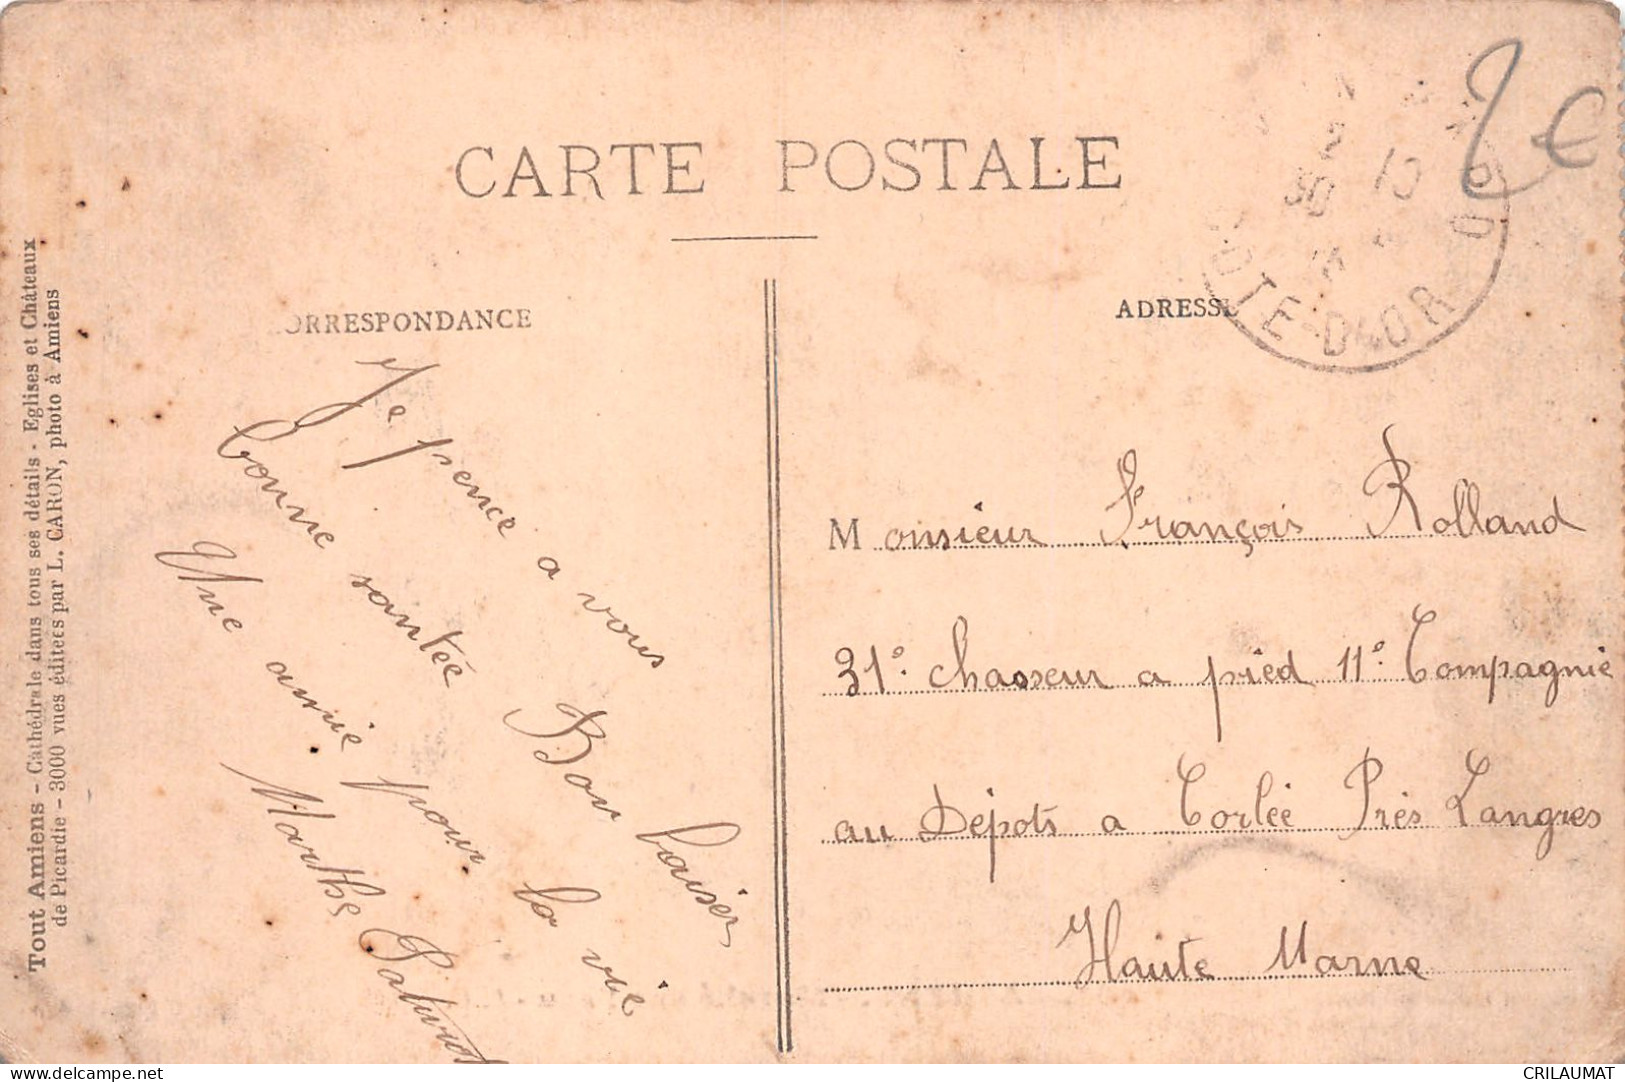 CARTE POSTALE
2 €
2
30 10
CÔTE-D'OR
CORRESPONDANCE
ADRESSE
Tout Amiens - Cathédrale dans tous ses détails - Eglises et Châteaux
de Picardie - 3000 vues éditées par L. CARON, photo à Amiens
Je pence a vous Bon baiser
bonne santée
Une amie pour la vie
Marthe
Monsieur François Rolland
31e chasseur a pied 11e Compagnie
au Dépots a Corlée Près Langres
Haute Marne
delcampe.net
CRILAUMAT